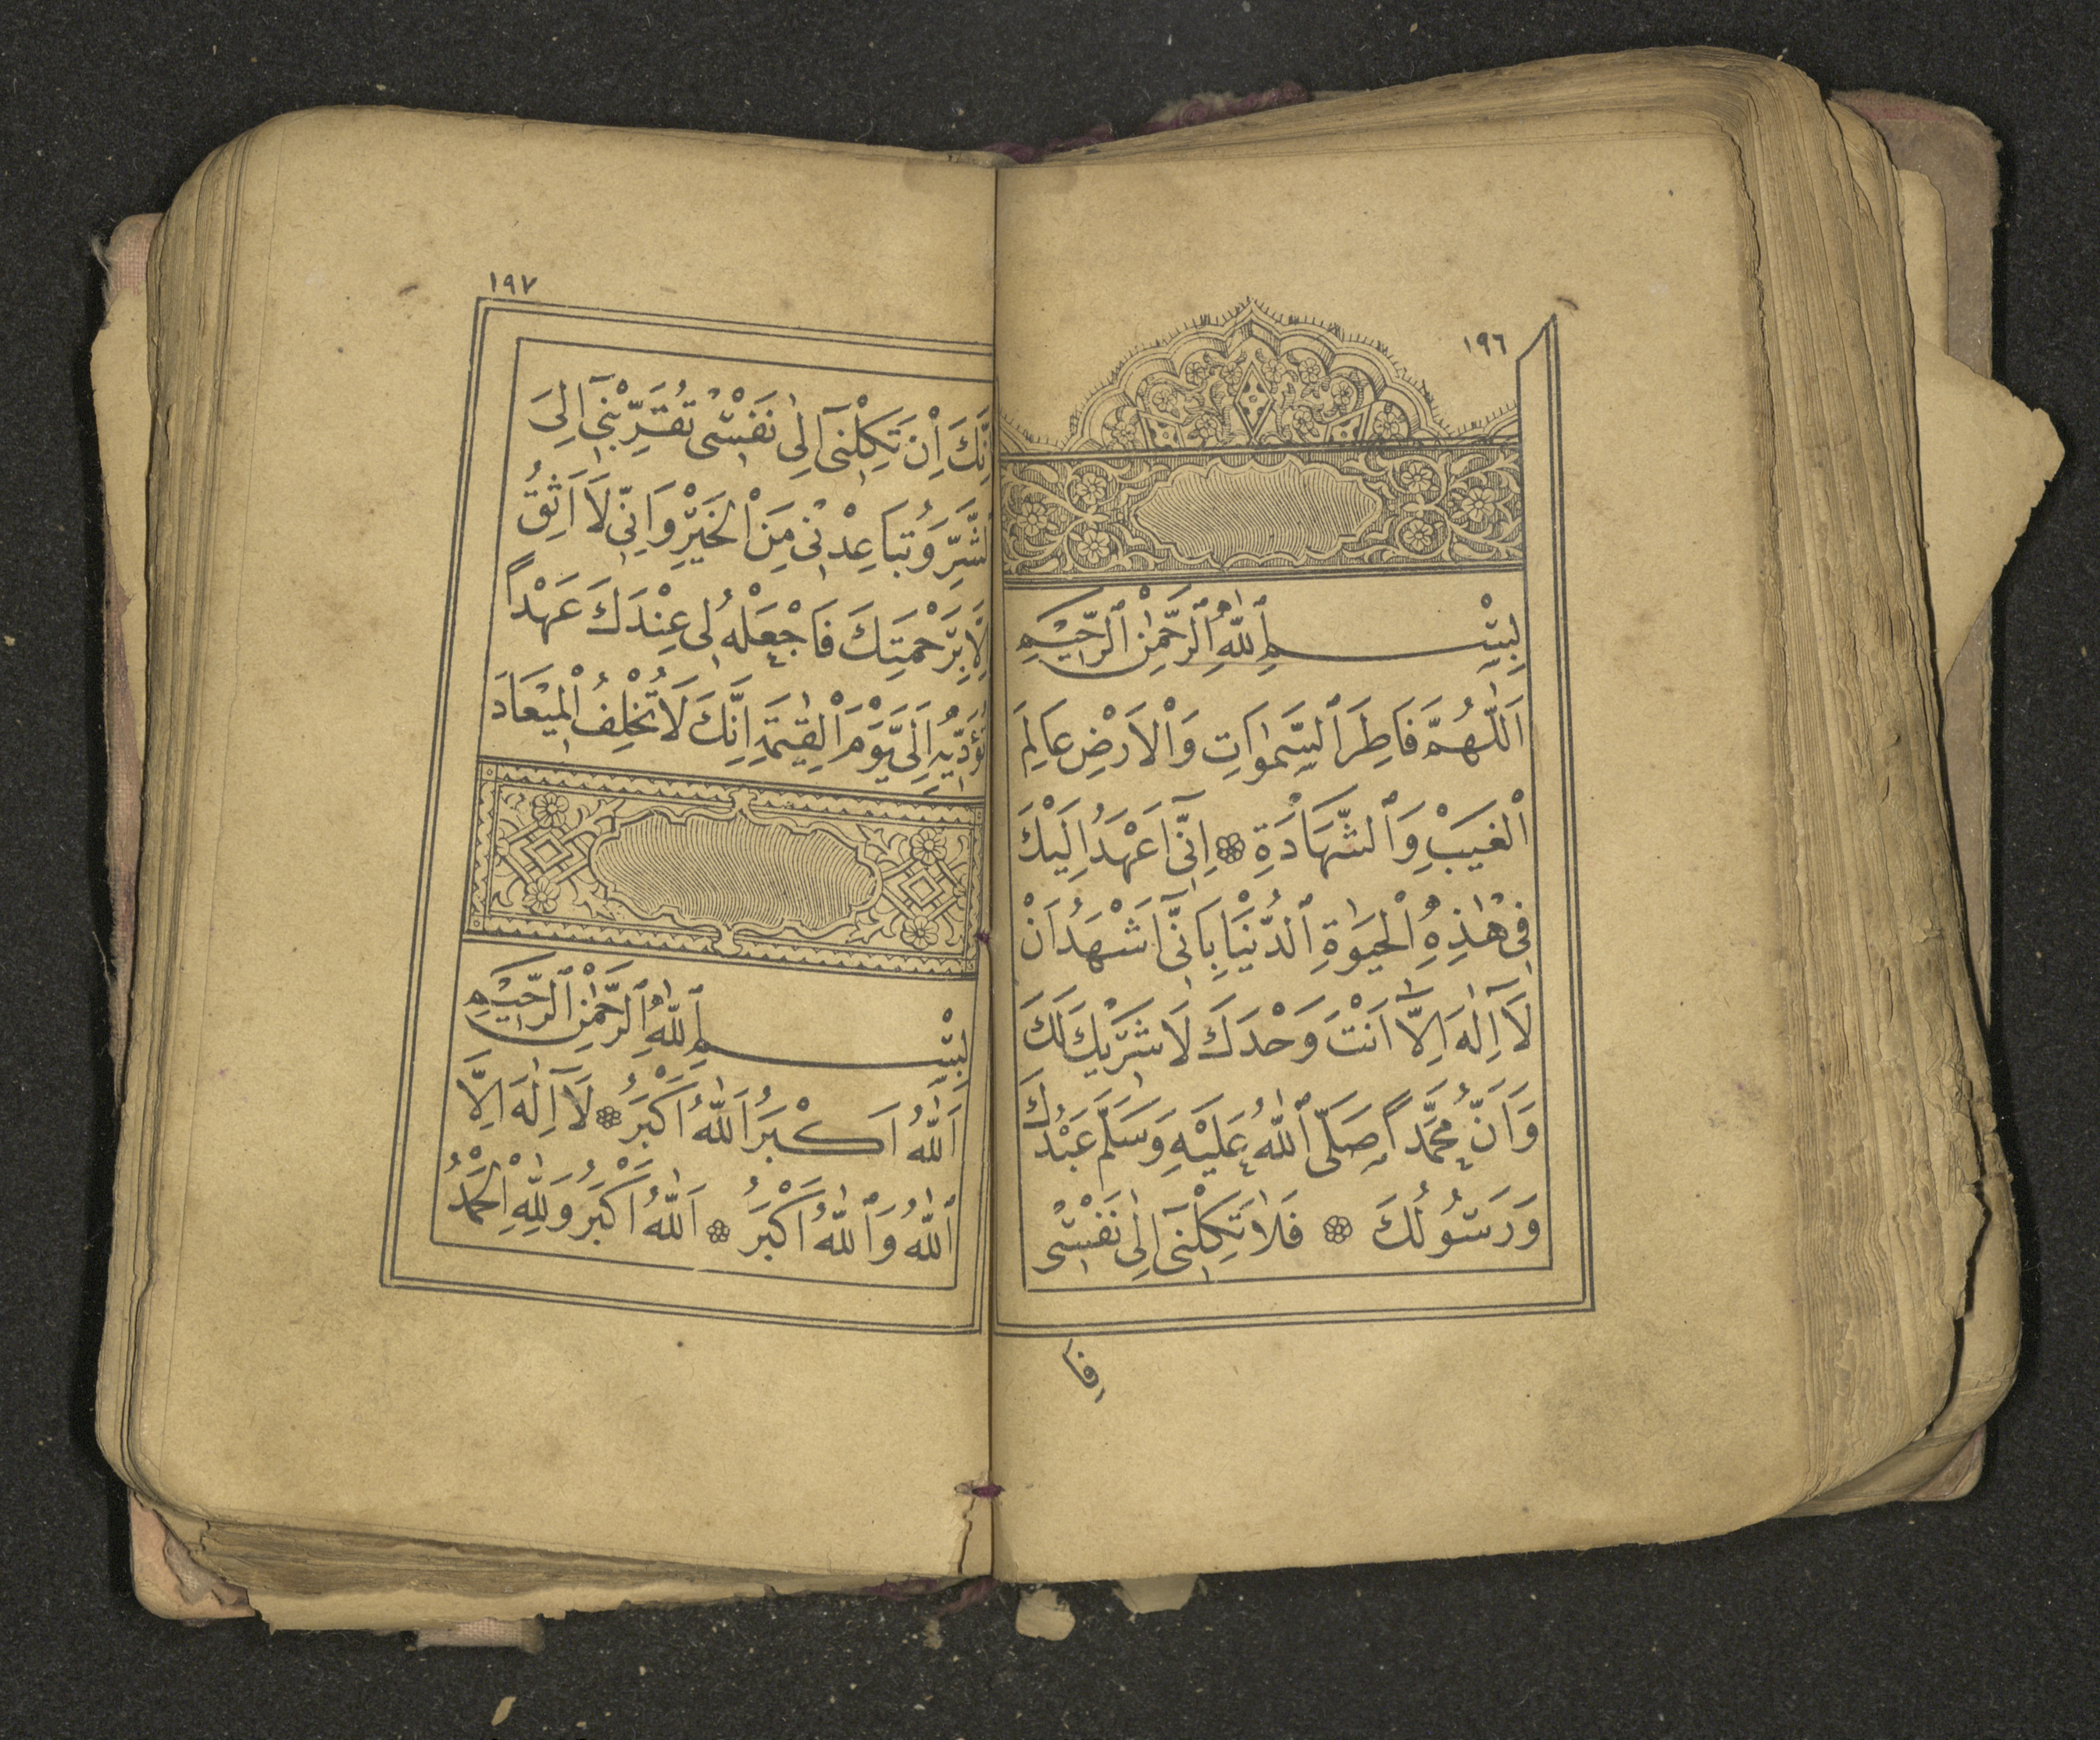 ١٩٦
بِسْمِ اللّٰهِ الرَّحْمٰنِ الرَّحِيْمِ
اَللّٰهُمَّ فَاطِرَ السَّمٰوَاتِ وَالْاَرْضِ عَالِمَ
الْغَيْبِ وَالشَّهَادَةِ ❁ اِنِّىٓ اَعْهَدُ اِلَيْكَ
فِى هٰذِهِ الْحَيٰوةِ الدُّنْيَا بِاَنِّىٓ اَشْهَدُ اَنْ
لَٓا اِلٰهَ اِلَّٓا اَنْتَ وَحْدَكَ لَا شَرِيْكَ لَكَ
وَاَنَّ مُحَمَّدًا صَلَّى اللّٰهُ عَلَيْهِ وَسَلَّمَ عَبْدُكَ
وَرَسُولُكَ ❁ فَلَا تَكِلْنِىٓ اِلٰى نَفْسِى
فَا
١٩٧
اِنَّكَ اِنْ تَكِلْنِىٓ اِلٰى نَفْسِى تُقَرِّبْنِىٓ اِلَى
الشَّرِّ وَتُبَاعِدْنِى مِنَ الْخَيْرِ وَاِنِّى لَٓا اَثِقُ
اِلَّا بِرَحْمَتِكَ فَاجْعَلْهُ لِى عِنْدَكَ عَهْدًا
تُؤَدِّيْهِ اِلٰى يَوْمِ الْقِيٰمَةِ اِنَّكَ لَا تُخْلِفُ الْمِيْعَادَ
بِسْمِ اللّٰهِ الرَّحْمٰنِ الرَّحِيْمِ
اَللّٰهُ اَكْبَرُ اَللّٰهُ اَكْبَرُ ❁ لَٓا اِلٰهَ اِلَّا
اللّٰهُ وَاللّٰهُ اَكْبَرُ ❁ اَللّٰهُ اَكْبَرُ وَلِلّٰهِ الْحَمْدُ